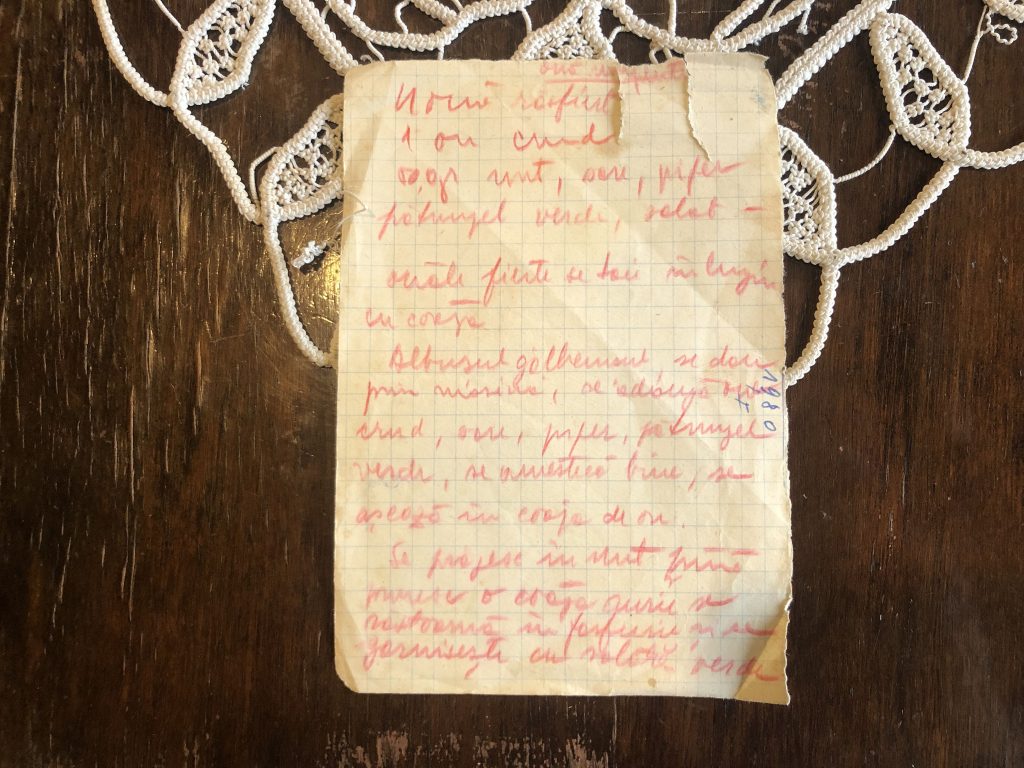 ouă
4 ouă răsfierte
1 on crud
unt, sare, piper
pătrunjel verde, salat –
ouăle fierte se taie în lungim
cu coaja
Albușul gălbenușul se dau
prin mașină, se adaugă ou
crud, sare, piper, pătrunjel
verde, se amestecă bine, se
așează în coaja de ou.
Se prăjesc în unt până
prinde o coajă aurie se
răstoarnă în farfurie și se
garnisește cu salată verde
1980